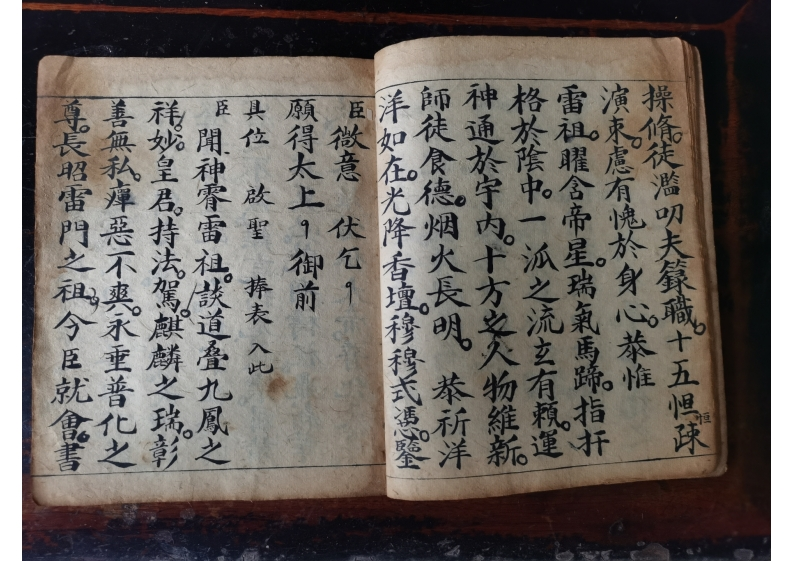 操脩。徒濫叨夫籙職。十五怛疎恒
演朿。慮有愧於身心。恭惟
雷祖。曜含帝星。瑞氣馬蹄。指扞
格於陰中。一派之流玄有頼。運
神通於宇内。十方之人物維新。
師徒食德。烟火長明。恭祈洋
洋如在。光降香壇。穆穆式憑鑒。
臣微意 伏乞
願得太上 御前
具位 啟聖 捧表入此
臣聞神霄雷祖。談道叠九鳳之
祥。妙皇君。持法。駕麒麟之瑞。彰
善無私。瘅惡不爽。永垂普化之
尊。長昭雷門之祖。今臣就會。書